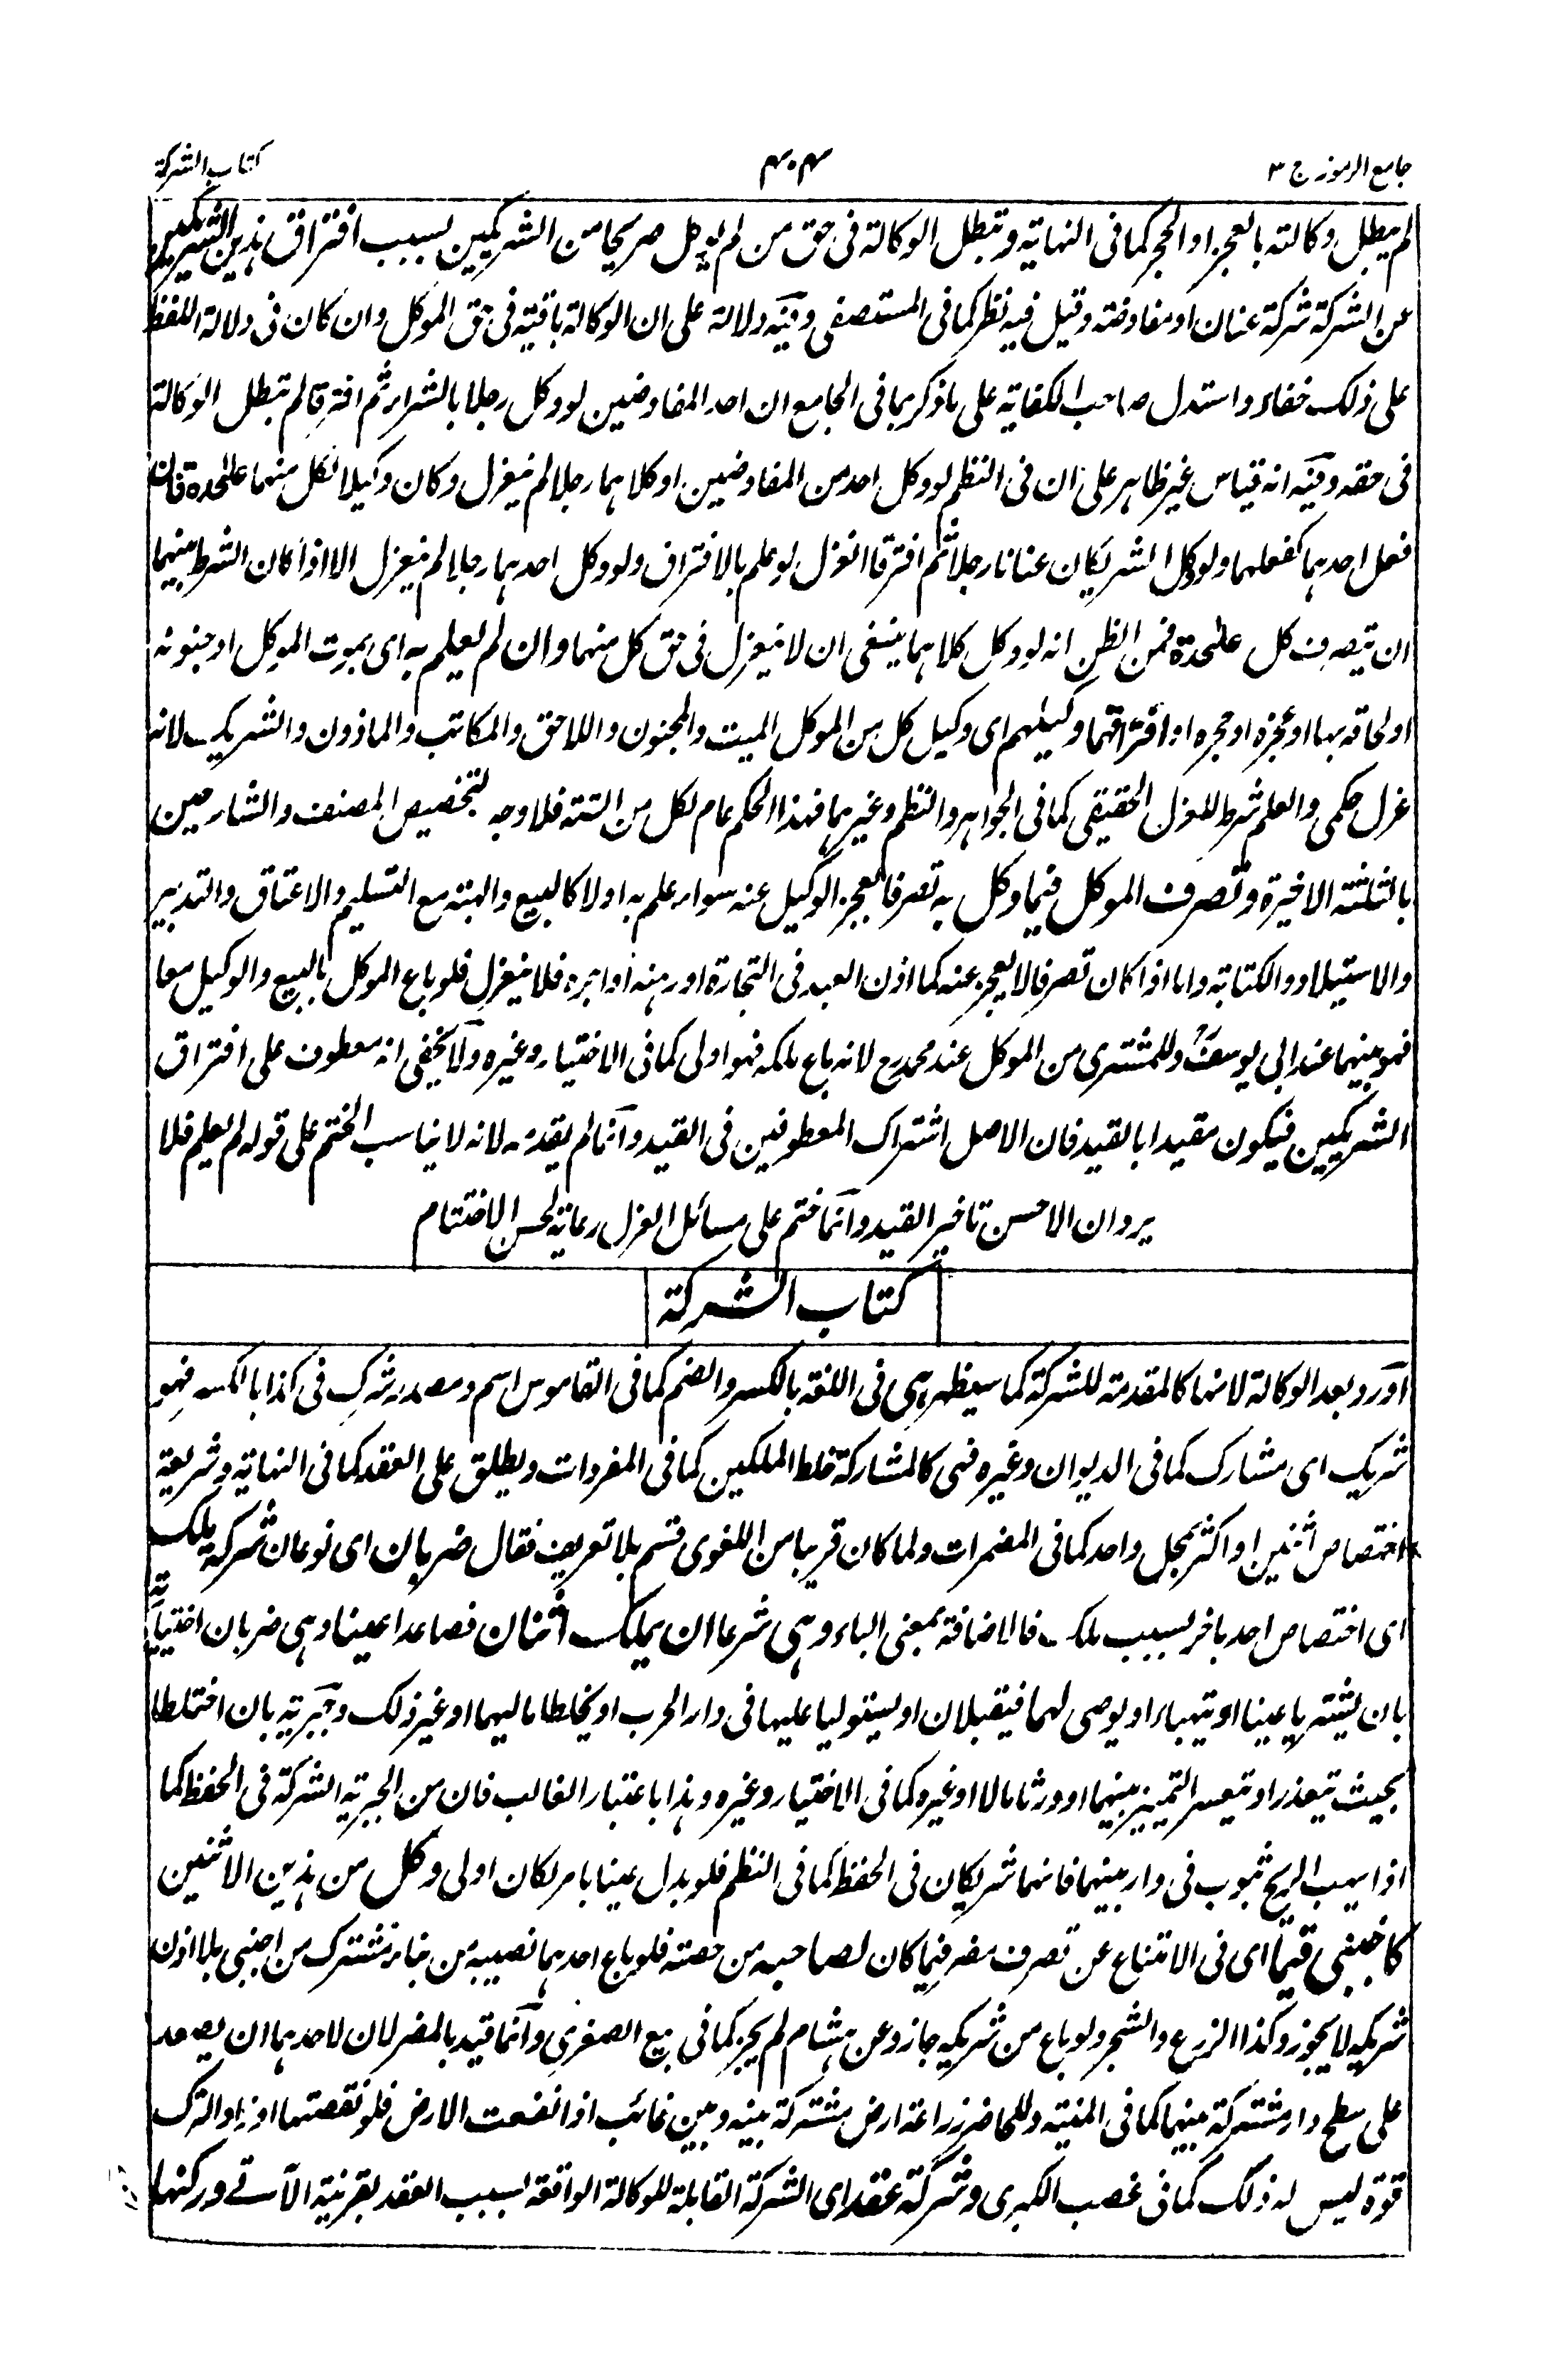 جامع الرموز ج ٣
٤٠٤
كتاب الشركة
لم يبطل وكالته بالعجز او الحجر كما فى النهاية وتبطل الوكالة فى حق من لم يوكل صريحا من الشريكين بسبب افتراق هذين الشريكين
عن الشركة شركة عنان او مفاوضة وقيل فيه نظر كما فى المستصفى وفيه دلالة على ان الوكالة باقية فى حق الموكل وان كان فى دلالة اللفظ
على ذلك خفاء واستدل صاحب الكفاية على ما ذكر بما فى الجامع ان احد المفاوضين لو وكل رجلا بالشراء ثم افترقا لم تبطل الوكالة
فى حقه وفيه انه قياس غير ظاهر على ان فى النظم لو وكل احد من المفاوضين او كلاهما رجلا لم ينعزل وكان وكيلا لكل منهما علٰحدة فان
فعل احدهما كفعلهما ولو وكل الشريكان عنانا رجلا ثم افترقا انعزل لو علم بالافتراق ولو وكل احدهما رجلا لم ينعزل الا اذا كان الشرط بينهما
ان يتصرف كل علٰحدة فمن الظن انه لو وكل كلاهما ينبغى ان لا ينعزل فى حق كل منهما وان لم يعلم به اى بموت الموكل او جنونه
او لحاقه بها او عجزه او حجره او افتراقهما وكيلهم اى وكيل كل من الموكل الميت والمجنون واللاحق والمكاتب والماذون والشريك لانه
عزل حكمى والعلم شرط للعزل الحقيقى كما فى الجواهر والنظم وغيرهما فهذا الحكم عام لكل من الستة فلا وجه لتخصيص المصنف والشارحين
بالثلثة الاخيرة وتصرف الموكل فيما وكل به تصرفا يعجز الوكيل عنه سواء علم به اولا كالبيع والهبة مع التسليم والاعتاق والتدبير
والاستيلاد والكتابة واما اذا كان تصرفا لا يعجز عنه كما اذن العبد فى التجارة او رهنه او آجره فلا ينعزل فلو باع الموكل بالبيع والوكيل معا
فهو بينهما عند ابى يوسف رح وللمشترى من الموكل عند محمد رح لانه باع ملكه فهو اولى كما فى الاختيار وغيره ولا يخفى انه معطوف على افتراق
الشريكين فيكون مقيدا بالقيد فان الاصل اشتراك المعطوفين فى القيد وانما لم يقدمه لانه لا يناسب الختم على قوله لم يعلم فلا
يرد ان الاحسن تاخير القيد وانما ختم على مسائل العزل رعاية لحسن الاختتام
كتاب الشركة
اورد بعد الوكالة لانها كالمقدمة للشركة كما سيظهر هى فى اللغة بالكسر والضم كما فى القاموس اسم ومصدر شرك فى كذا بالكسر فهو
شريك اى مشارك كما فى الديوان وغيره فهى كالمشاركة خلط الملكين كما فى المفردات ويطلق على العقد كما فى النهاية وشريعة
اختصاص اثنين او اكثر بمحل واحد كما فى المضمرات ولما كان قريبا من اللغوى قسم بلا تعريف فقال ضربان اى نوعان شركة ملك
اى اختصاص احد باخر بسبب ملك فالاضافة بمعنى الباء وهى شرعا ان يملك اثنان فصاعدا عينا وهى ضربان اختيارية
بان يشتريا عينا او يتهباه او يوصى لهما فيقبلان او يستوليا عليها فى دار الحرب او يخلطا ماليهما او غير ذلك وجبرية بان اختلطا
بحيث يتعذر او يتعسر التمييز بينهما او ورثا مالا او غيره كما فى الاختيار وغيره وهذا باعتبار الغالب فان من الجبرية الشركة فى الحفظ كما
اذا يهب الريح بثوب فى دار بينهما فانهما شريكان فى الحفظ كما فى النظم فلو بدل عينا بامر لكان اولى وكل من هذين الاثنين
كاجنبى قيما اى فى الامتناع عن تصرف مضر فيما كان لصاحبه من حصته فلو باع احدهما نصيبه من بناء مشترك من اجنبى بلا اذن
شريكه لا يجوز وكذا الزرع والشجر ولو باع من شريكه جاز وعن هشام لم يجز كما فى بيع الصغرى وانما قيد بالمضر لان لاحدهما ان يصعد
على سطح دار مشتركة بينهما كما فى المنية وللحاضر زراعة ارض مشتركة بينه وبين غائب اذا انفعت الارض فلو نقصتها او زاد الترك
قوة ليس له ذلك كما فى غصب الكبرى وشركة عقد اى الشركة القابلة للوكالة الواقعة بسبب العقد بقرينة الآتى وركنها